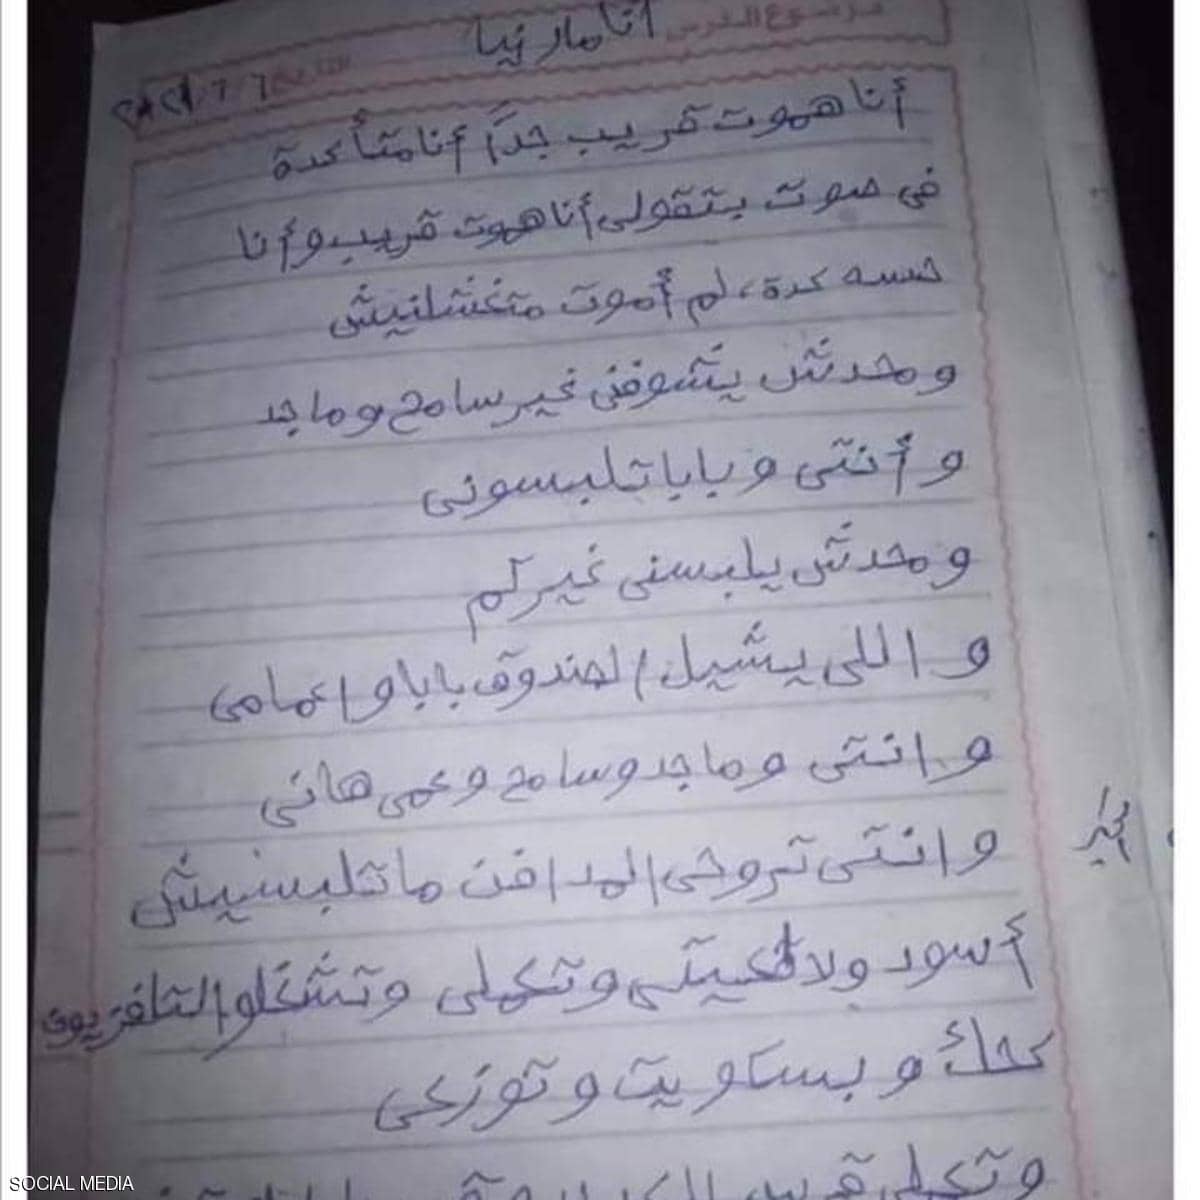 موضوع الدرس
أنا مارنيا
التاريخ ٦ / ٦ / ٢٠٢١
أنا هموت قريب جداً أنا متأكدة
في صوت بتقولى أنا هموت قريب وأنا
حسه كدة، لم أموت متغسلنيش
ومحدش يشوفنى غير سامح وماجد
وأنتى وبابا تلبسونى
ومحدش يلبسنى غيركم
واللى يشيل الصندوق بابا واعمامى
وانتى وماجد وسامح وعمى هانى
وانتى تروحى المدافن ماتلبسيش
أسود ولا تعيطى وتكملى وتشغلو التلفزيون
كحك وبسكويت وتوزعى
SOCIAL MEDIA